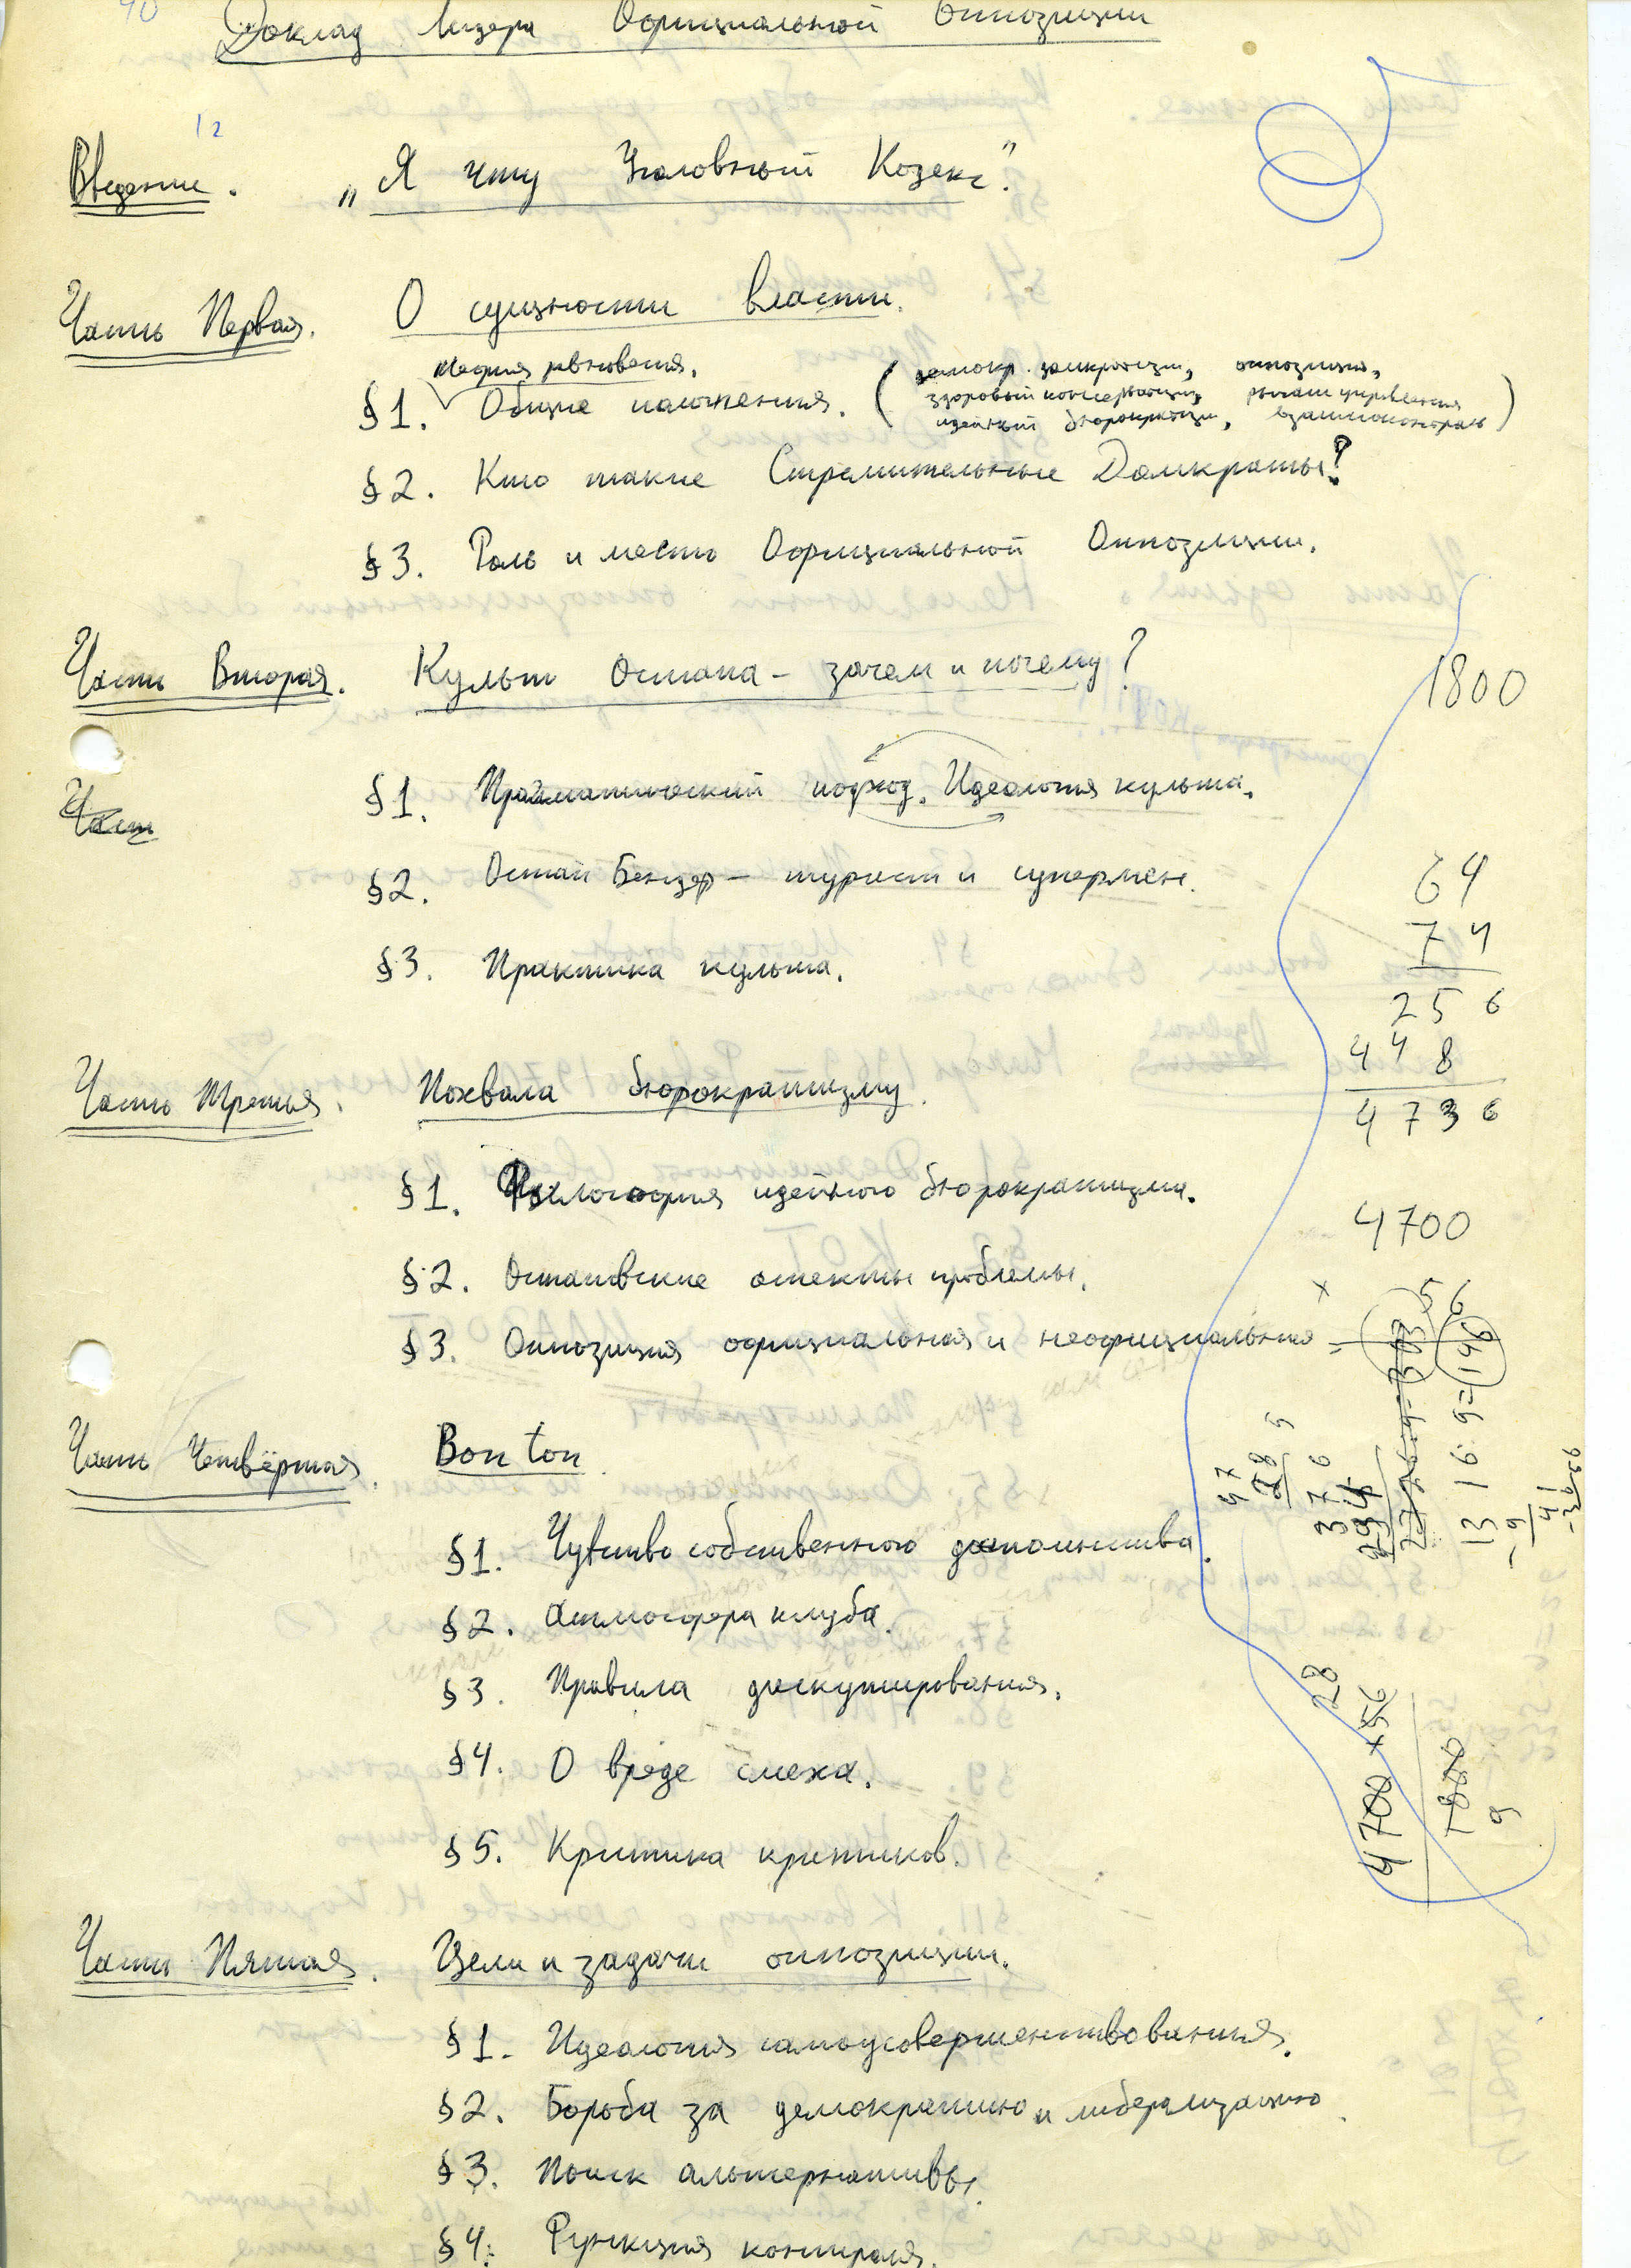 Доклад Лидера Официальной Оппозиции
12
Введение. „Я чту Уголовный Кодекс".
Часть Первая. О сущности власти.
Теория равновесия.
§1. Общие положения. (домокр. домкратизм, оппозиция,
здоровый консерватизм, рычаги управления
идейный бюрократизм, взаимоконтроль)
§2. Кто такие Стремительные Домкраты?
§3. Роль и место Официальной Оппозиции.
Часть Вторая. Культ Остапа – зачем и почему?
1800
Част
§1. Прагматический подход. Идеология культа.
§2. Остап Бендер – турист и супермен.
§3. Практика культа.
64
74
256
448
4736
Часть Третья. Похвала бюрократизму.
§1. Философия идейного бюрократизма.
4700
§2. Остаповские аспекты проблемы.
§3. Оппозиция официальная и неофициальная
Часть Четвёртая. Bon ton.
§1. Чувство собственного достоинства.
§2. Атмосфера клуба.
§3. Правила дискутирования.
§4. О вреде смеха.
§5. Критика критиков.
47
28
9
376
1316:9=146
28
4700 +56
7800
9
Часть Пятая. Цели и задачи оппозиции.
§1. Идеология самоусовершенствования.
§2. Борьба за демократию и либерализацию.
§3. Поиск альтернативы.
§4. Функция контроля.